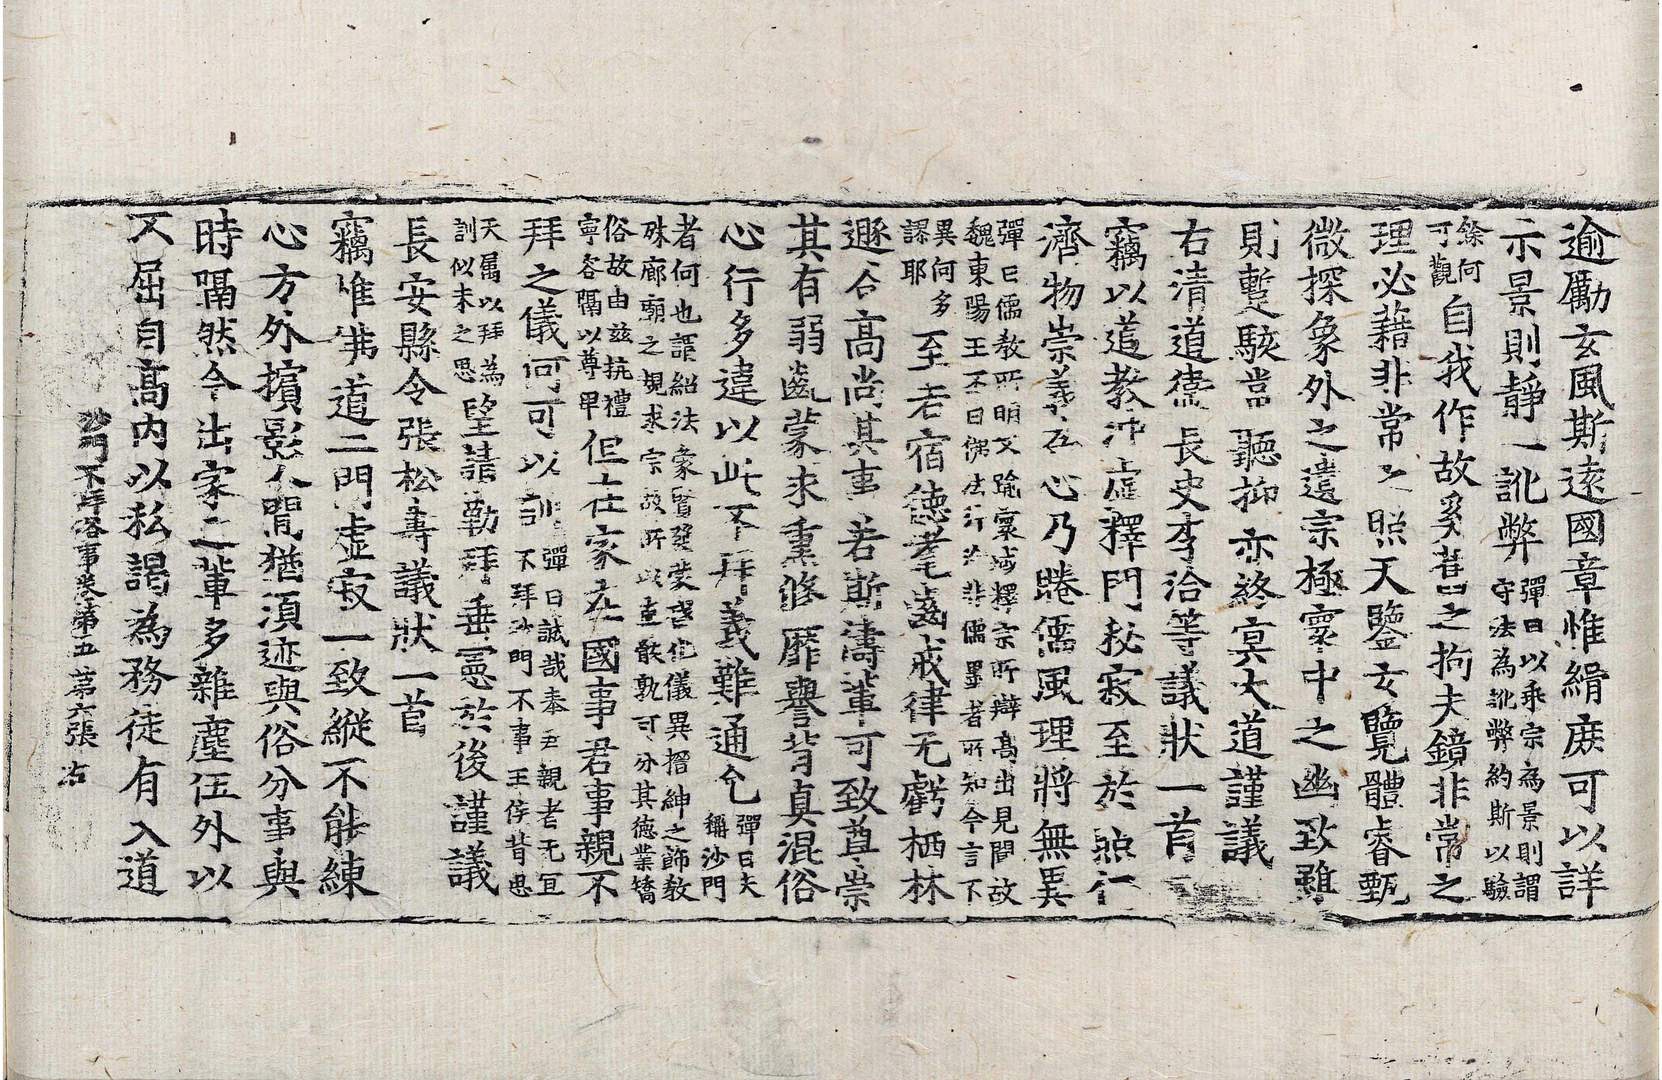 逾勵玄風斯遠國章惟緝庶可以詳
示景則靜一訛弊彈曰以乘宗為景則謂守法為訛弊約斯以驗
餘何可觀自我作故奚昔之拘夫鏡非常之
理必藉非常之照天鑒玄覽體睿甄
微探象外之遺宗極寰中之幽致雖
則蹔駭常聽抑亦終寘大道謹議
右清道衛長史李洽等議狀一首
竊以道教沖虛釋門秘寂至於照仁
濟物崇義在心乃睠儒風理將無異
彈曰儒教所明又踰寰域釋宗所辯高出見聞故魏東陽王丕曰佛法行為非儒墨者所知今言下
異何多謬耶至若宿德耄齒戒律无虧栖林
遯谷高尚其事若斯儔輩可致尊崇
其有弱齒蒙求薰修靡譽背真混俗
心行多違以此不拜義難通允彈曰夫稱沙門
者何也謂紹法象賢發蒙啓化儀異搢紳之飾教殊廊廟之規求宗故所以直骸孰可分其德業矯
俗故由茲抗禮寧容隔以尊卑但在家在國事君事親不
拜之儀何可以訓彈曰誠哉奉主親者无宜不拜沙門不事王侯背恩
天屬以拜為訓似未之思望請勒拜垂憲於後謹議
長安縣令張松壽議狀一首
竊惟佛道二門虛寂一致縱不能練
心方外擯影人間猶須迹與俗分事與
時隔然今出家之輩多雜塵伍外以
不屈自高內以私謁為務徒有入道
沙門不拜俗事卷第五　第六張　右